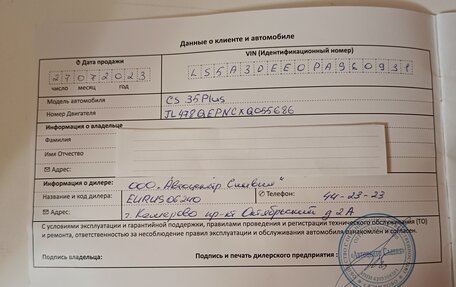 Данные о клиенте и автомобиле
Дата продажи
VIN (Идентификационный номер)
27072023
LS5A3DEE0PA960931
число месяц год
Модель автомобиля CS 35Plus
Номер Двигателя JL478QEPNCXQ055686
Информация о владельце
Фамилия
Имя Отчество
Адрес:
Информация о дилере: ООО "Автоцентр Сливик"
Название и код дилера: EURUS06240 Телефон: 44-23-23
Адрес: г. Кемерово пр-кт Октябрьский д 2А
С условиями эксплуатации и гарантийной поддержки, правилами проведения и регистрации технического обслуживания (ТО)
и ремонта, ответственностью за несоблюдение правил эксплуатации и обслуживания автомобиля ознакомлен и согласен.
Подпись владельца: Подпись и печать дилерского предприятия: